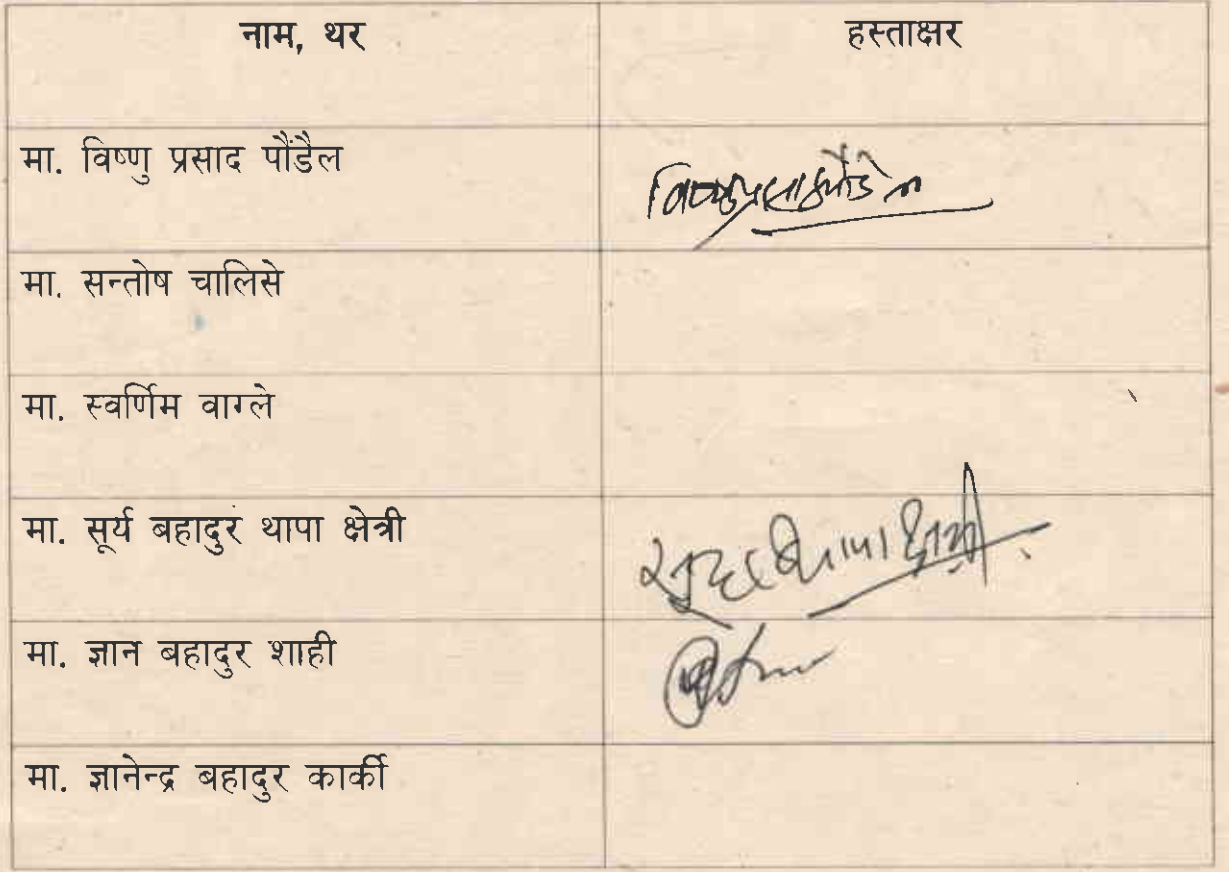 नाम, थर हस्ताक्षर
मा. विष्णु प्रसाद पौंडैल
मा. सन्तोष चालिसे
मा. स्वर्णिम वाग्ले
मा. सूर्य बहादुर थापा क्षेत्री
मा. ज्ञान बहादुर शाही
मा. ज्ञानेन्द्र बहादुर कार्की